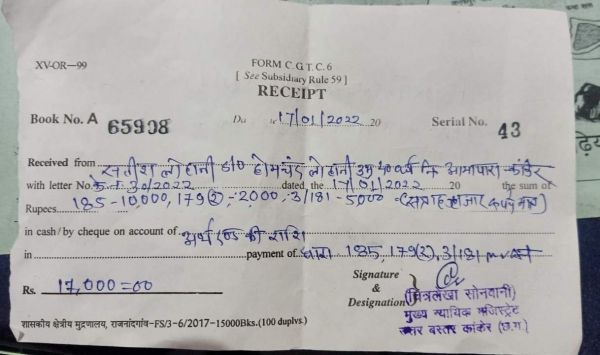 XV-OR—99
FORM C.G.T.C. 6
[ See Subsidiary Rule 59 ]
RECEIPT
Book No. A 65908
17/01/2022 20
Serial No. 43
Received from सतीश लोहानी S/O होमचंद लोहानी उम्र 40 वर्ष नि आमापारा कांकेर
with letter No. 30/2022 dated the 17/01/2022 20 the sum of
Rupees 185-10,000, 179(2)-2,000, 3/181-5000 (सत्रह हजार रूपये मात्र)
in cash / by cheque on account of अर्थदण्ड की राशि
in payment of धारा 185, 179(2), 3/181
Rs. 17,000=00
Signature
&
Designation
(चित्रलेखा सोनवानी)
मुख्य न्यायिक मजिस्ट्रेट
उत्तर बस्तर कांकेर (छ.ग.)
शासकीय क्षेत्रीय मुद्रणालय, राजनांदगांव-FS/3-6/2017-15000Bks.(100 duplvs.)